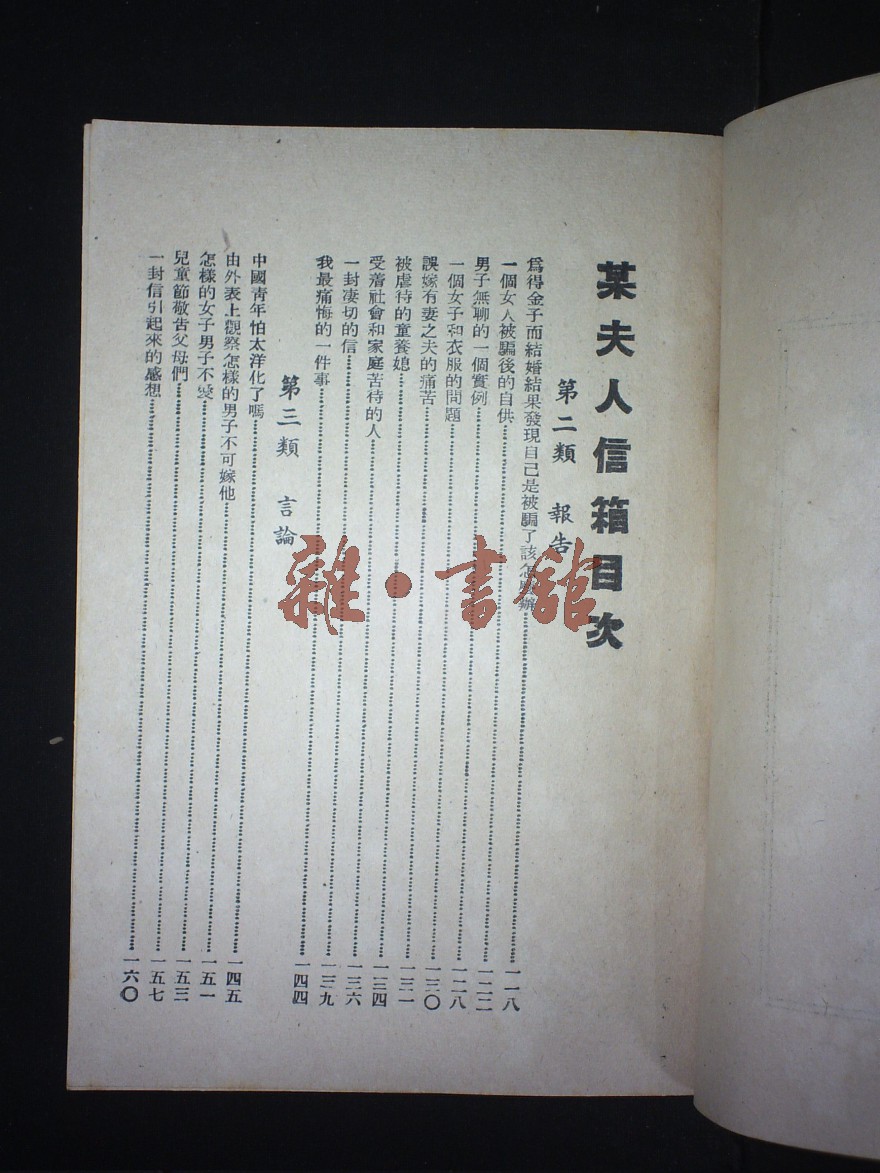 某夫人信箱目次
第二類 報告
爲得金子而結婚結果發現自己是被騙了該怎麼辦……一一八
一個女人被騙後的自供……一二二
男子無聊的一個實例……一二八
一個女子和衣服的問題……一三〇
誤嫁有妻之夫的痛苦……一三一
被虐待的童養媳……一三四
受着社會和家庭苦待的人……一三六
一封凄切的信……一三九
我最痛悔的一件事……一四四
第三類 言論
中國青年怕太洋化了嗎……一四五
由外表上觀察怎樣的男子不可嫁他……一五一
怎樣的女子男子不愛……一五三
兒童節敬告父母們……一五七
一封信引起來的感想……一六〇
雜·書館